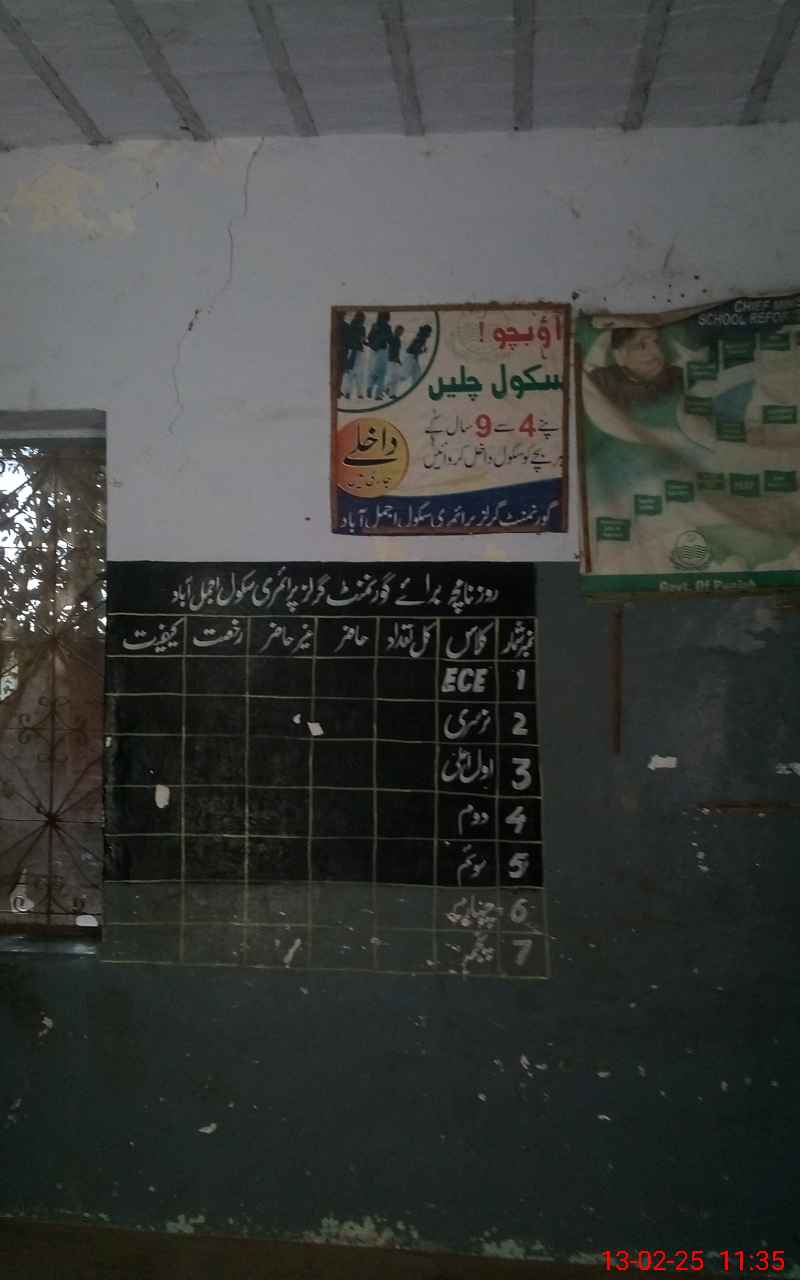 آؤ بچو !
سکول چلیں
اپنے 4 سے 9 سال کے
ہر بچے کو سکول داخل کروائیں
داخلے
جاری ہیں
گورنمنٹ گرلز پرائمری سکول اجمل آباد
CHIEF MINIS
SCHOOL REFO
Govt. Of Punjab
روزنامچہ برائے گورنمنٹ گرلز پرائمری سکول اجمل آباد
نمبر شمار کلاس کل تعداد حاضر غیر حاضر رخصت کیفیت
1 ECE
2 نرسری
3 اول اعلیٰ
4 دوم
5 سوئم
6 چہارم
7 پنجم
13-02-25 11:35